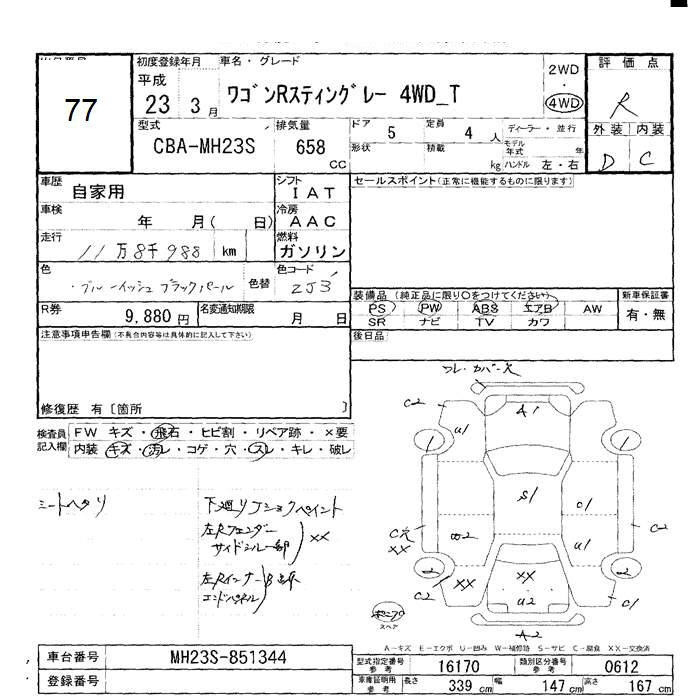 初度登録年月
車名・グレード
評価点
平成
23 3月
77
ワゴンRスティングレー 4WD_T
2WD
4WD
R
型式
CBA-MH23S
排気量
658 CC
ドア 5
定員 4人
ディーラー・並行
モデル年式 年
形状
積載 kg
ハンドル 左・右
外装 内装
D C
車歴
自家用
シフト
IAT
セールスポイント(正常に機能するものに限ります)
車検
年 月( 日)
冷房
AAC
走行
11万8千988 km
燃料
ガソリン
色
ブルーイッシュブラックパール
色替
色コード
ZJ3
装備品 (純正品に限り○をつけてください)
新車保証書
PS PW ABS エアB AW
有・無
SR ナビ TV カワ
R券
9,880 円
名変通知期限
月 日
注意事項申告欄(不具合内容等は具体的に記入して下さい)
後日品
修復歴 有〔箇所 〕
検査員記入欄
FW キズ・飛石・ヒビ割・リペア跡・×要
内装 キズ・汚レ・コゲ・穴・スレ・キレ・破レ
シートヘタリ
左Rフェンダー
××
エンドパネル
C2
A1
U1
1
1
S1
C1
C2
XX
U1
2
2
XX
XX
C2
U2
C1
スペア
A-2
A-キズ E-エクボ U-凹み W-補修跡 S-サビ C-腐食 XX-交換済
車台番号
MH23S-851344
登録番号
型式指定番号 参考
16170
類別区分番号 参考
0612
車庫証明用 参考
長さ 339 cm
幅 147 cm
高さ 167 cm